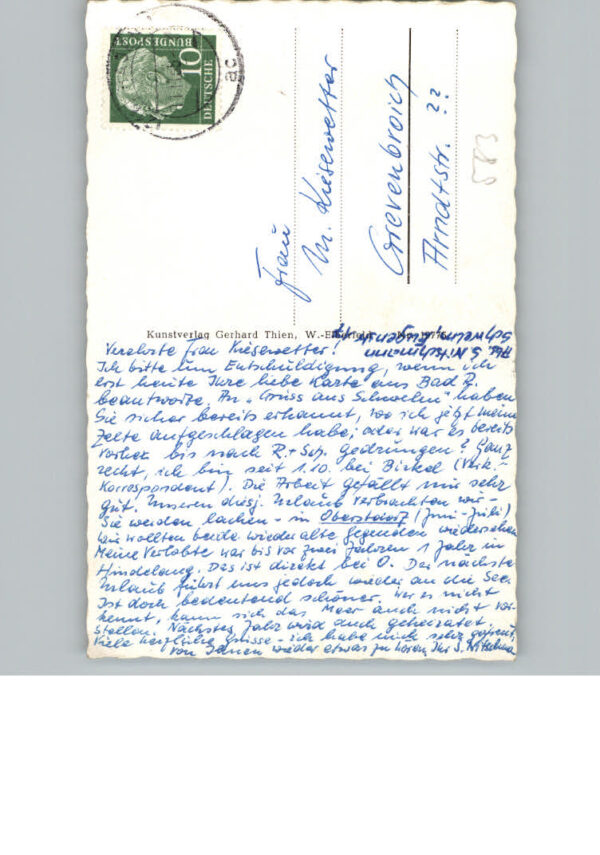 DEUTSCHE
BUNDESPOST
10
Frau
M. Kiesewetter
Grevenbroich
Arndtstr. ??
583
Kunstverlag Gerhard Thien, W.-Elberfeld
Abs. S. Nitschmann
Schwelm,
Verehrte Frau Kiesewetter!
Ich bitte um Entschuldigung, wenn ich
erst heute Ihre liebe Karte aus Bad
beantworte. An „Gruss aus Schwelm" haben
Sie sicher bereits erkannt, wo ich jetzt meine
Zelte aufgeschlagen habe; oder war es bereits
vorher bis nach R.+Sch. gedrungen? Ganz
recht, ich bin seit 1.10. bei Birkel (Verk.-
Korrespondent). Die Arbeit gefällt mir sehr
gut. Unseren diesj. Urlaub verbrachten wir -
Sie werden lachen - in Oberstdorf (Juni-Juli)
wir wollten beide wieder alte Gegenden wiedersehen
Meine Verlobte war bis vor zwei Jahren 1 Jahr in
Hindelang. Das ist direkt bei O. Der nächste
Urlaub führt uns jedoch wieder an die See.
Ist doch bedeutend schöner. Wer es nicht
kennt, kann sich das Meer auch nicht vor-
stellen. Nächstes Jahr wird auch geheiratet.
Viele herzliche Grüsse - ich habe mich sehr gefreut,
von Ihnen wieder etwas zu hören, Ihr S. Nitschma